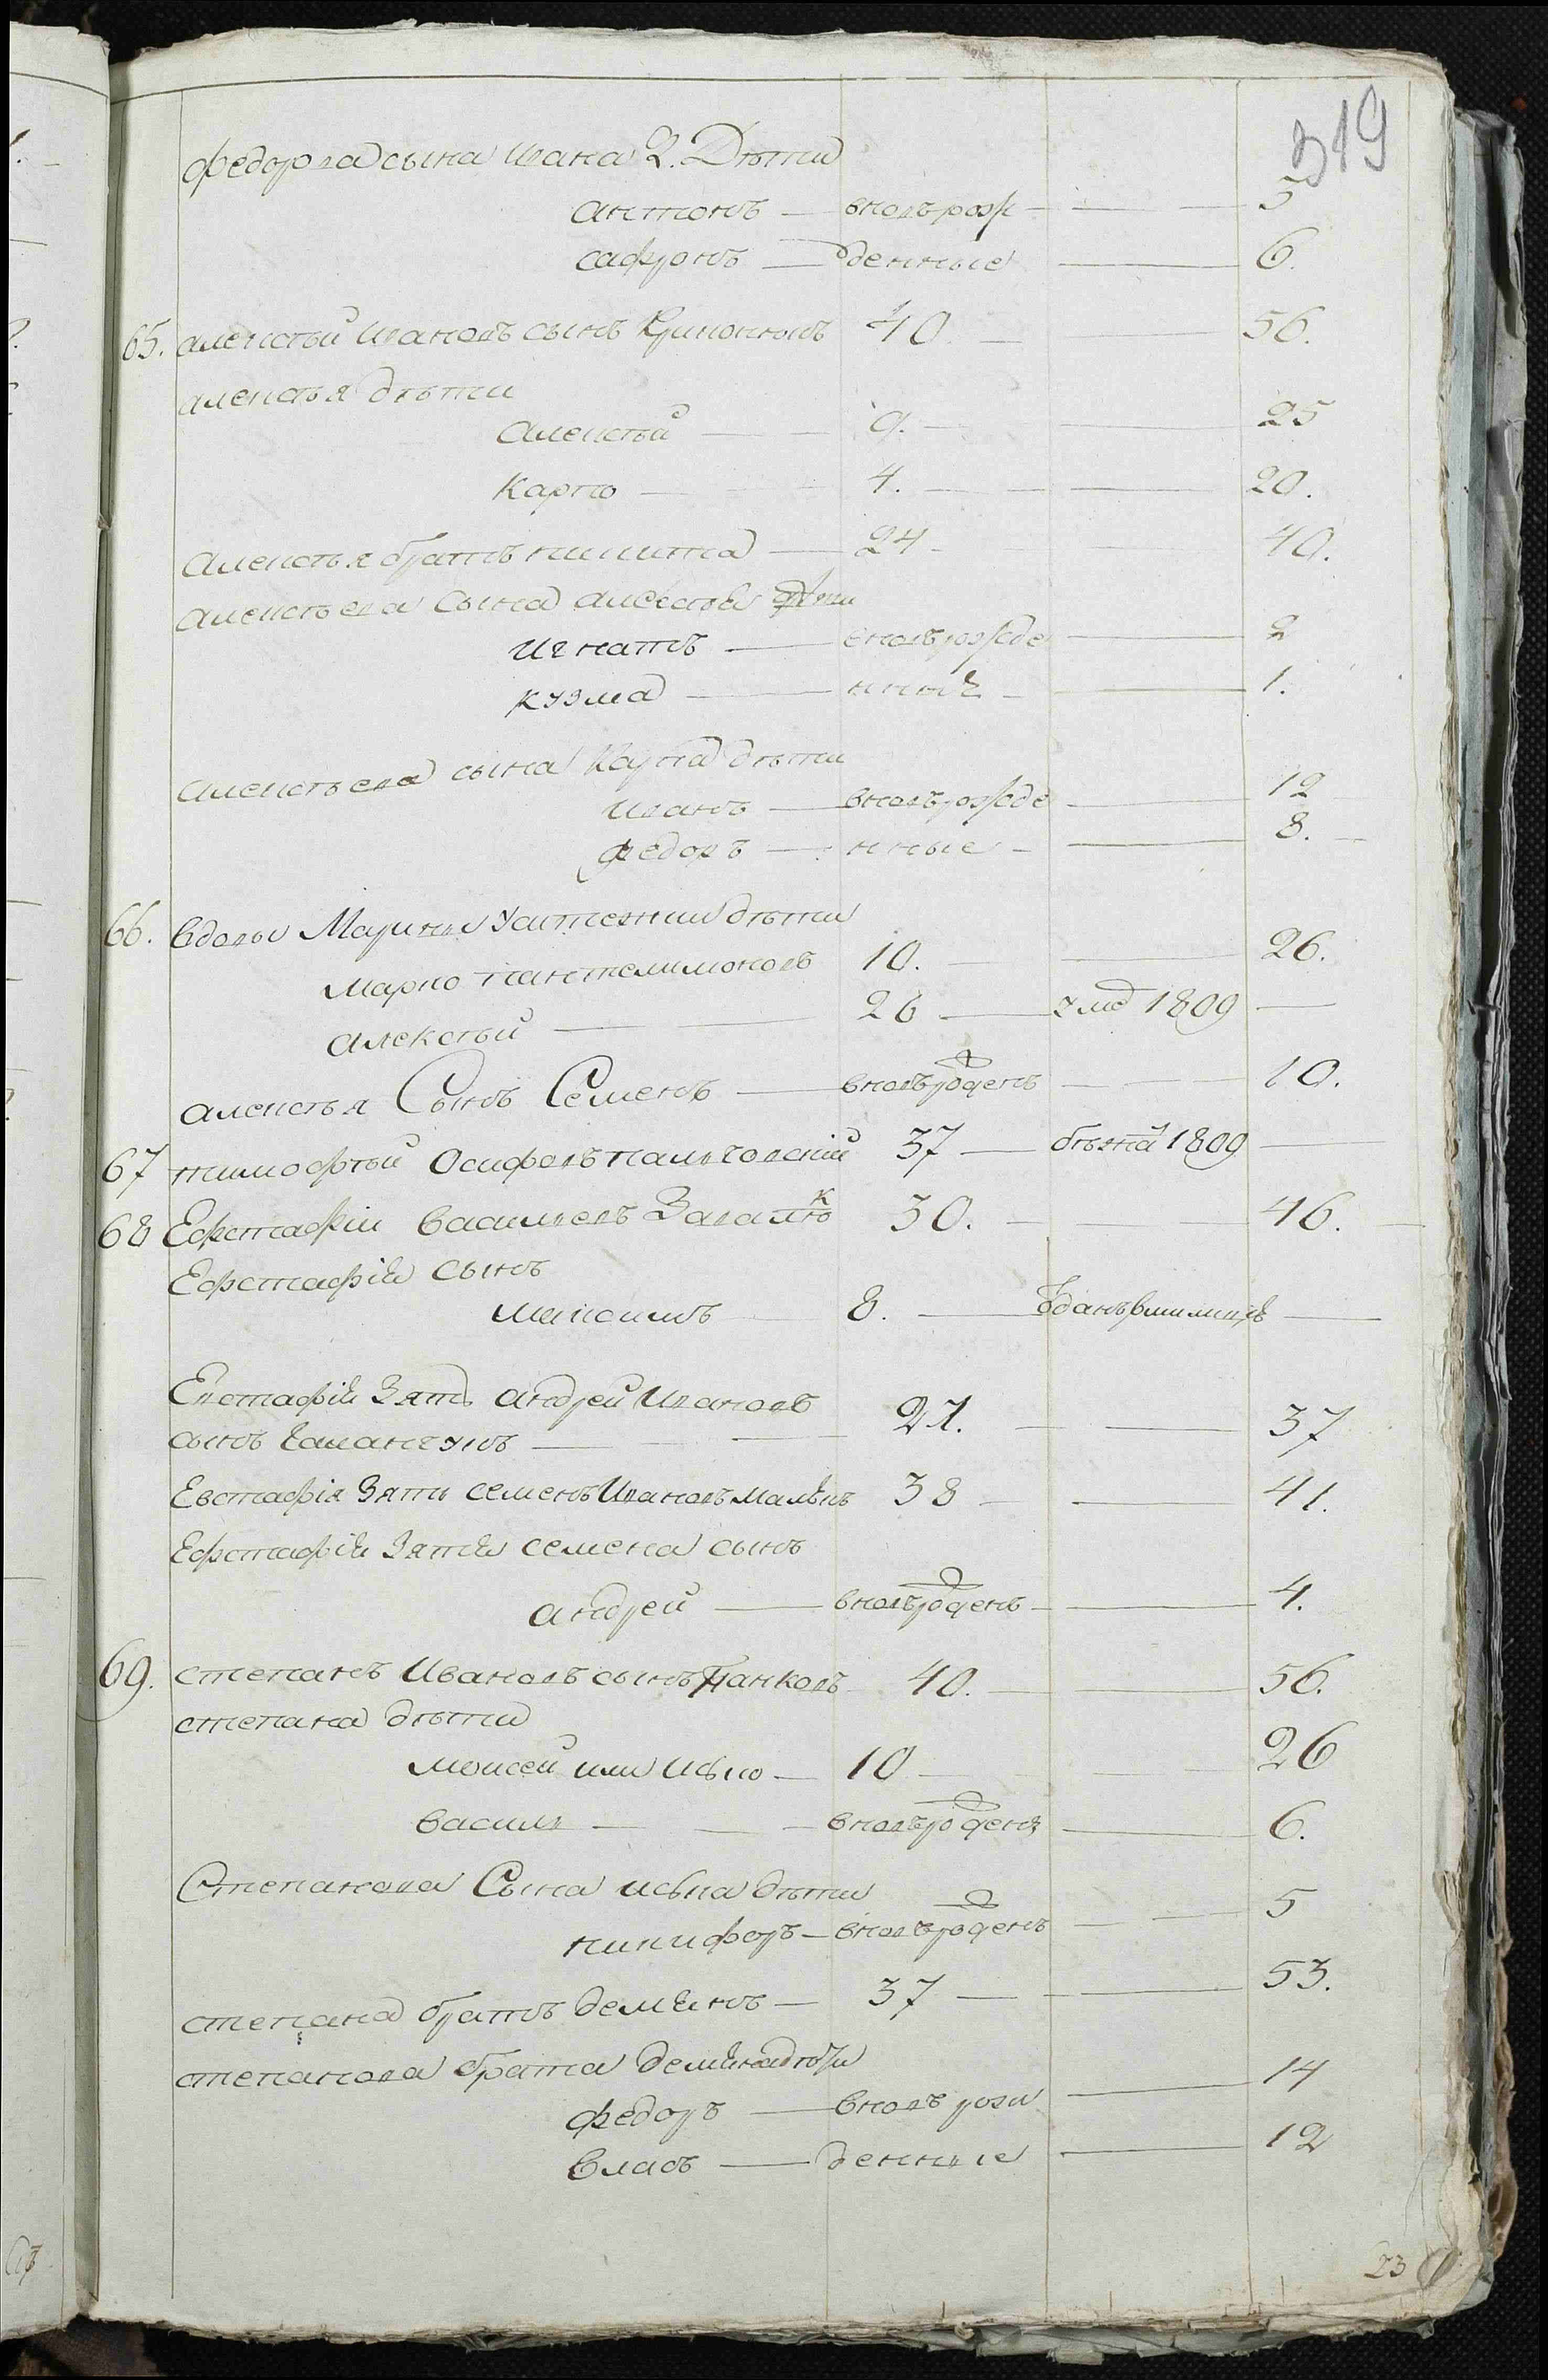 319
федорова сына ивана 2. Дѣти
антонъ — вновърож — 5
сафронъ — денные — 6.
65. алексѣй ивановъ сынъ 40. — 56.
алексѣя дѣти
Алексѣй — 9. — 25
Карпо — 4. — 20.
Алексѣя братъ никита — 24 — 40.
алексѣева сына алексѣя дѣти
игнатъ — вновърожде — 2
кузма — нные — 1.
алексѣева сына Карпа дѣти
иванъ — вновърожде — 12
федоръ — нные — 8.
66. вдовы Марины дѣти
марко пантелимоновъ 10. — 26.
алексѣй — 26 — умѣ 1809 —
алексѣя Сынъ Семенъ — вновърожденъ — 10.
67 тимофѣй Осифовъ пальчовский 37 — бѣжа 1809 —
68 Ефстафіи васильевъ 30. — 46.
Ефстафія сынъ
максимъ — 8. — одданъ вмилицію —
Евстафія Зять андрей Ивановъ
сынъ — 21. — 37
Евстафія Зять семенъ Ивановъ 38 — 41.
Ефстафія Зятя семена сынъ
андрей — вновърожденъ — 4.
69. степанъ Ивановъ сынъ Панковъ 40. — 56.
степана дѣти
моисей или исько — 10 — 26
василь — вновърожденъ — 6.
Степанова Сына иська дѣти
никифоръ — вновърожденъ — 5
степана братъ деміянъ — 37 — 53.
степанова брата деміяна дѣти
федоръ — вновърож — 14
власъ — денные — 12
23